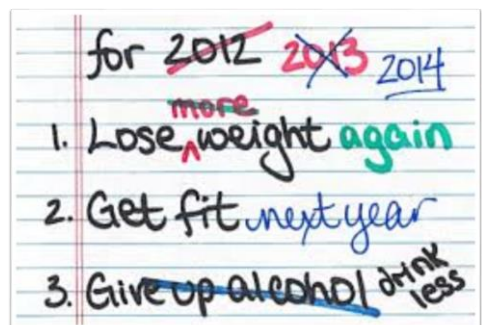 for 2012 2013 2014
more
1. Lose ^ weight again
2. Get fit next year
3. Give up alcohol drink less